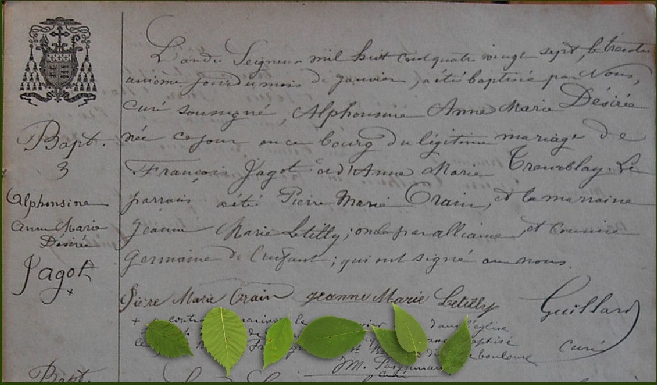 Bapt.
3
Alphonsine
Anne Marie
Désirée
Jagot
+
L'an du Seigneur mil huit cent quatre vingt sept, le trente
unième jour du mois de janvier, a été baptisée par Nous,
curé soussigné, Alphonsine Anne Marie Désirée
née ce jour, en ce bourg du légitime mariage de
François Jagot et d'Anne Marie Tremblay. Le
parrain a été Pierre Marie Orain, et la marraine
Jeanne Marie Letilly; oncle par alliance et cousine
Germaine de l'enfant; qui ont signé avec nous.
Pierre Marie Orain Jeanne Marie Letilly Guillard
curé
+ a contracté mariage le dans l'église
baptisé
M.
Bapt.